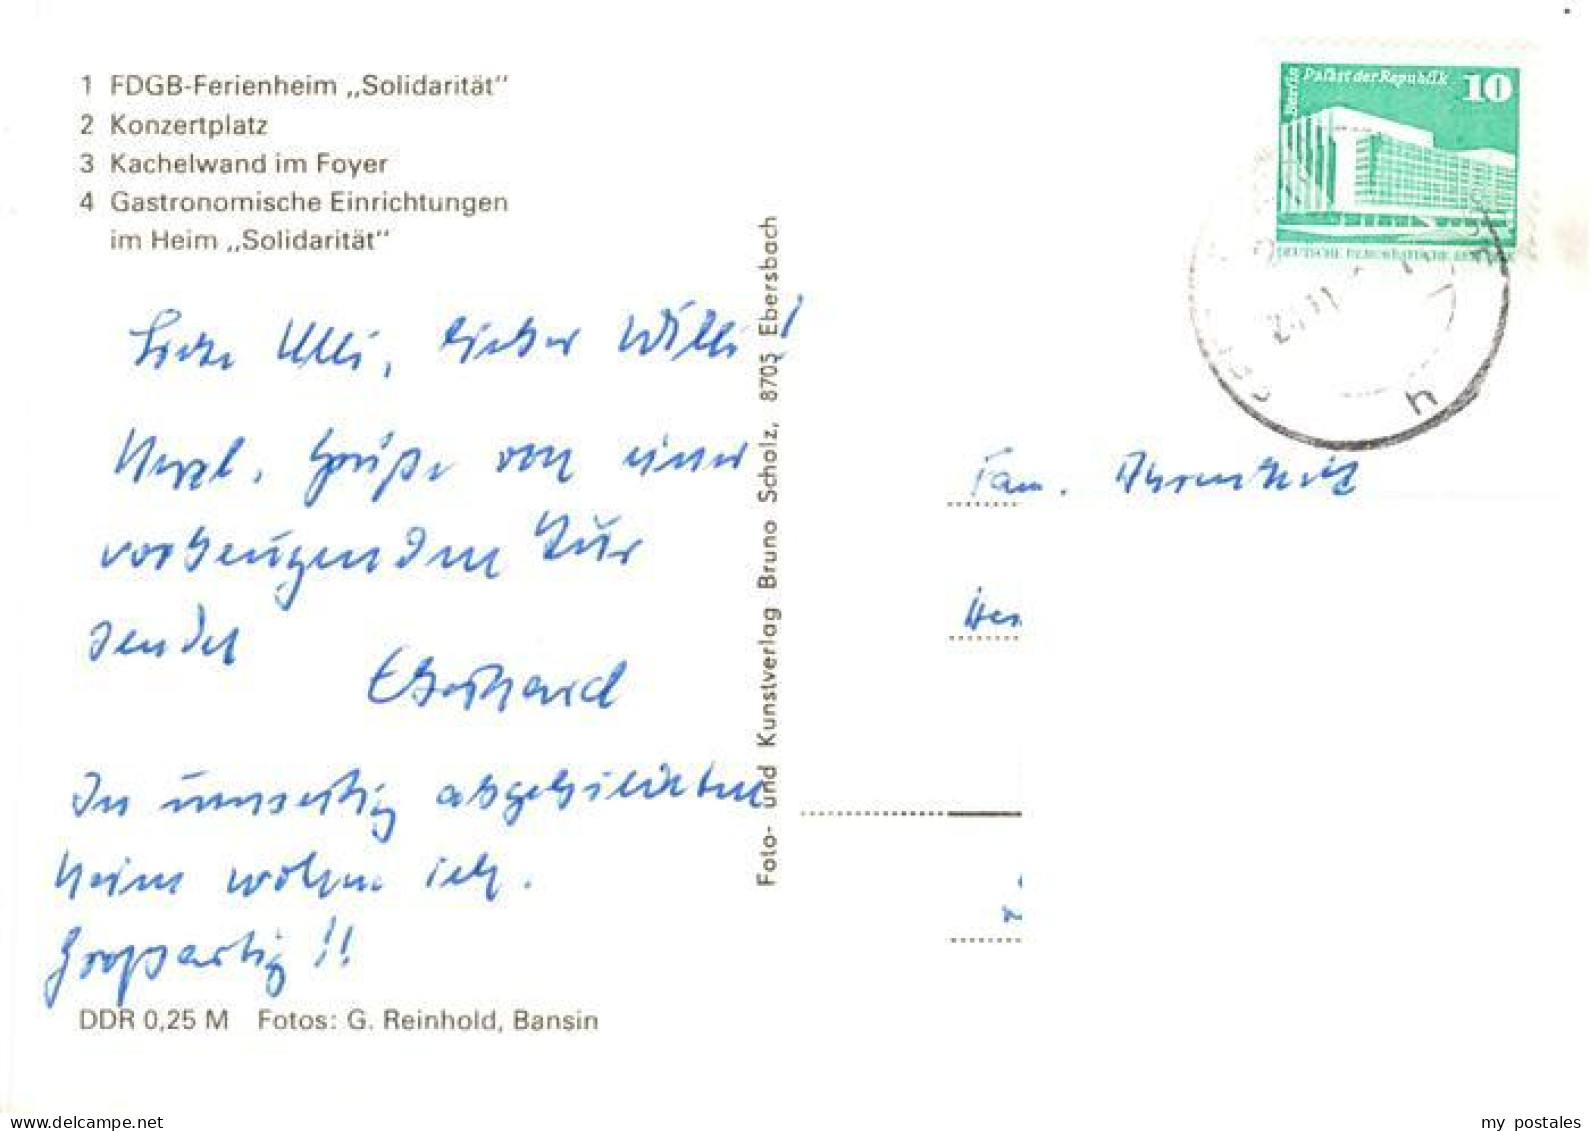 1 FDGB-Ferienheim „Solidarität“
2 Konzertplatz
3 Kachelwand im Foyer
4 Gastronomische Einrichtungen
im Heim „Solidarität“
Liebe Ulli, lieber Willi!
Herzl. Grüße von einer
vorbeugenden Kur
sendet
Eberhard
Im umseitig abgebildeten
Heim wohne ich.
Großartig!!
DDR 0,25 M Fotos: G. Reinhold, Bansin
Foto- und Kunstverlag Bruno Scholz, 8705 Ebersbach
Berlin Palast der Republik 10
DEUTSCHE DEMOKRATISCHE REPUBLIK
h
Fam.
delcampe.net
my_postales